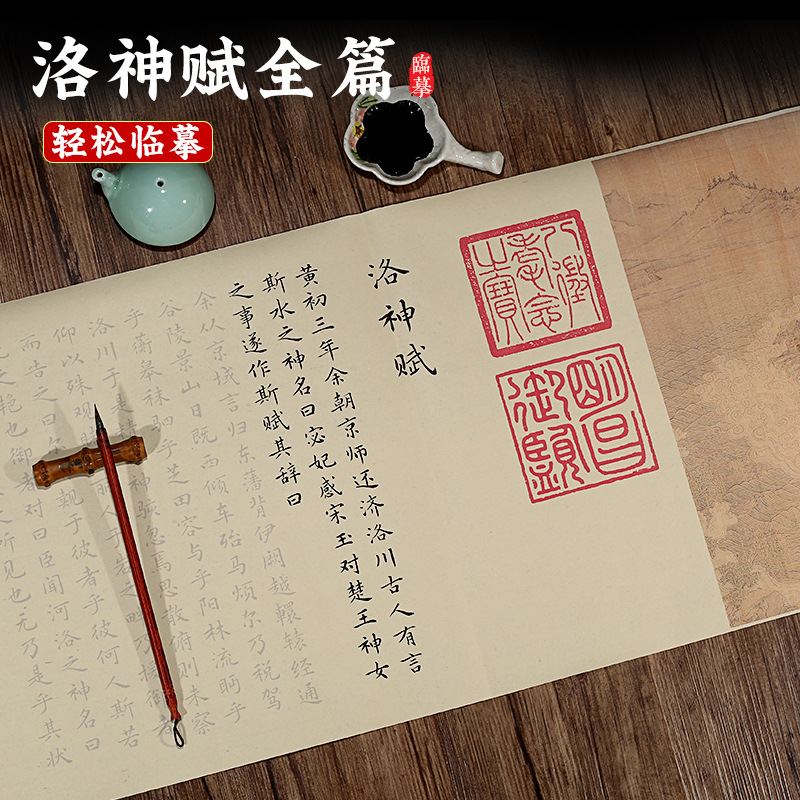 洛神赋全篇
臨摹
轻松临摹
八徵耄念之寶
明昌御覽
洛神赋
黄初三年余朝京师还济洛川古人有言
斯水之神名曰宓妃感宋玉对楚王神女
之事遂作斯赋其辞曰
余从京域言归东藩背伊阙越轘辕经通
谷陵景山日既西倾车殆马烦尔乃税驾
乎蘅皋秣驷乎芝田容与乎阳林流眄乎
洛川于是精神骇忽焉思散俯则未察
仰以殊观丽人于岩之畔乃援御者
而告之曰尔觌于彼者乎彼何人斯若
之艳也御者对曰臣闻河洛之神名曰
所见也无乃是乎其状